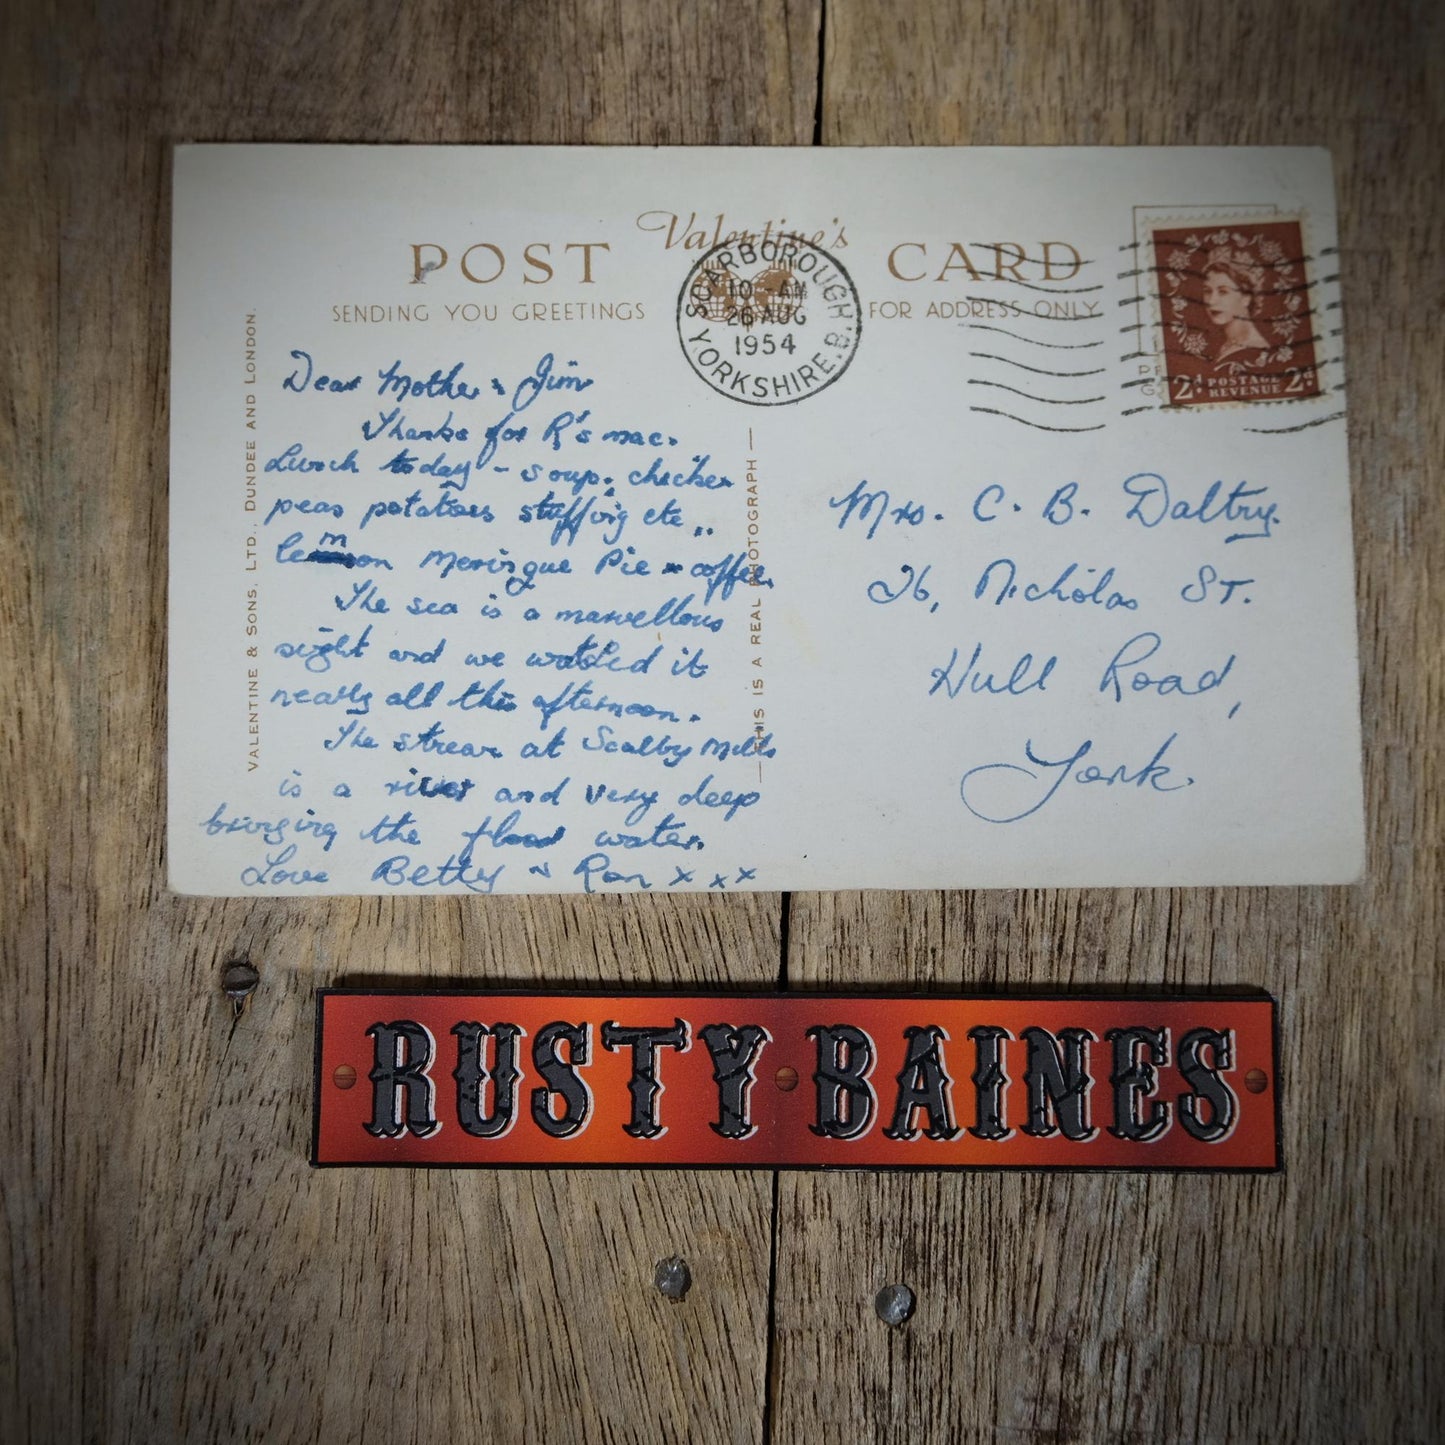 POST Valentine's CARD
SENDING YOU GREETINGS FOR ADDRESS ONLY
SCARBOROUGH
10 - AM
26 AUG
1954
YORKSHIRE.B
2D POSTAGE REVENUE 2D
VALENTINE & SONS, LTD., DUNDEE AND LONDON.
Dear Mother & Jim
Thanks for R's mac.
Lunch today - soup. chicken
peas potatoes stuffing etc..
lemon Meringue Pie & coffee.
The sea is a marvellous
sight and we watched it
nearly all this afternoon.
The stream at Scalby Mills
is a river and very deep
bringing the flood water.
Love Betty & Ron x x x
THIS IS A REAL PHOTOGRAPH
Mrs. C. B. Daltry.
26, Nicholas St.
Hull Road,
York.
RUSTY BAINES